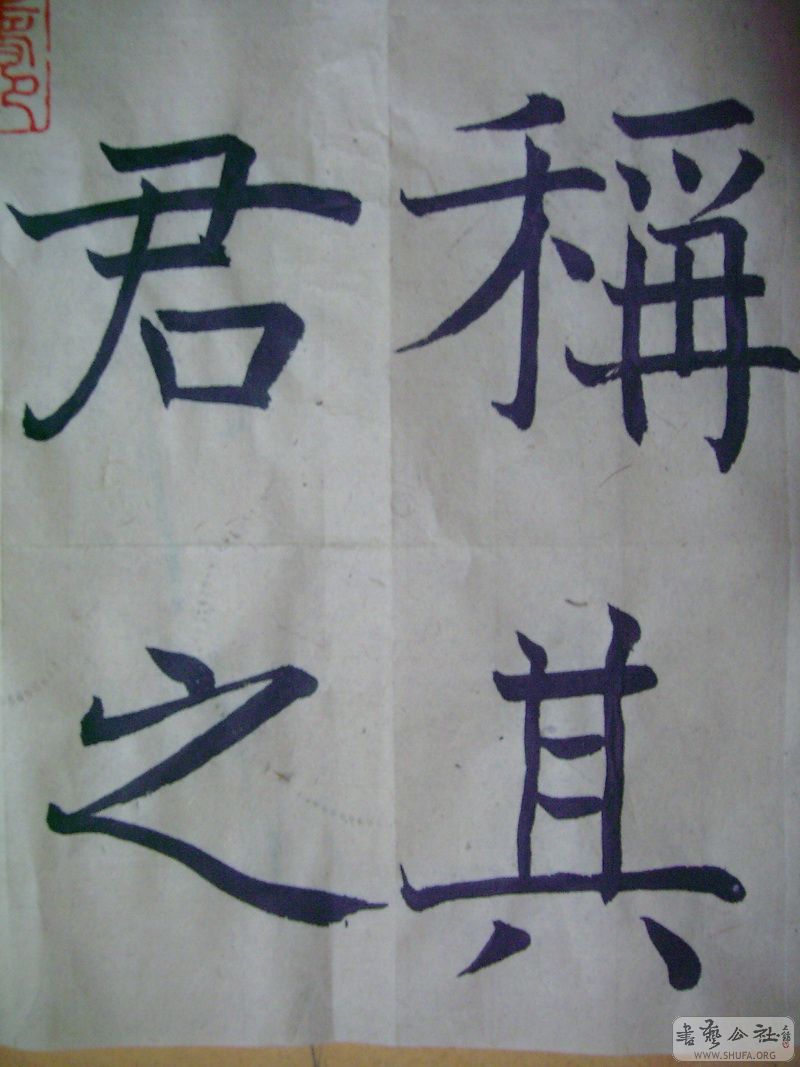 稱其
君之
書藝公社
WWW.SHUFA.ORG